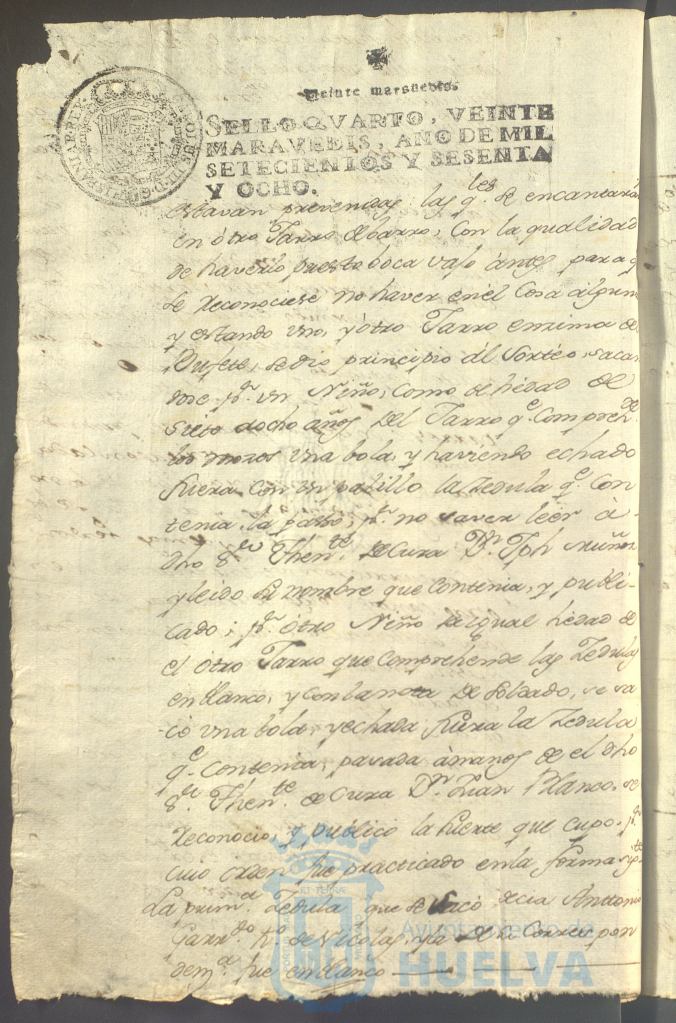 Veinte maravedis.
SELLO QVARTO, VEINTE
MARAVEDIS, AÑO DE MIL
SETECIENTOS Y SESENTA
Y OCHO.
CAROLUS III D. G. HISPANIAR. REX
estavan prevenidas las q.les se encantaron
en otro Tarro de barro, con la qualidad
de haverlo puesto boca vajo antes para q
se Reconociese no haver en el cosa alguna
y estando uno, y otro Tarro ensima de
Bufete, se dio principio al Sorteo, sacan
dose p.r un Niño, como de hedad de
siete a ocho años del Tarro q.e Comprehde
los mozos una bola, y haviendo echado
fuera con un palillo la Zedula q.e Con
tenia, la passo, p.r no saver leer à
dho S.or Then.te de Cura D.n Jph Muñoz
y leido el nombre que contenia, y publi
cado; p.r otro Niño de igual hedad de
el otro Tarro que comprehende las Zedulas
en blanco, y con la nota de Soldado, se sa
cò una bola, y echada fuera la Zedula
q.e Contenia, pasada à manos de el dho
S.or Then.te de Cura D.n Juan Blanco, se
Reconocio, y publico la suerte que cupo, p.r
cuio orden fue practicado en la forma sig.te
La prim.a Zedula que se sacò decia Anttonio
Garr.do h.o de Nicolas, y la de su Correspon
dem.a fue en blanco
Ayuntamiento de
HUELVA